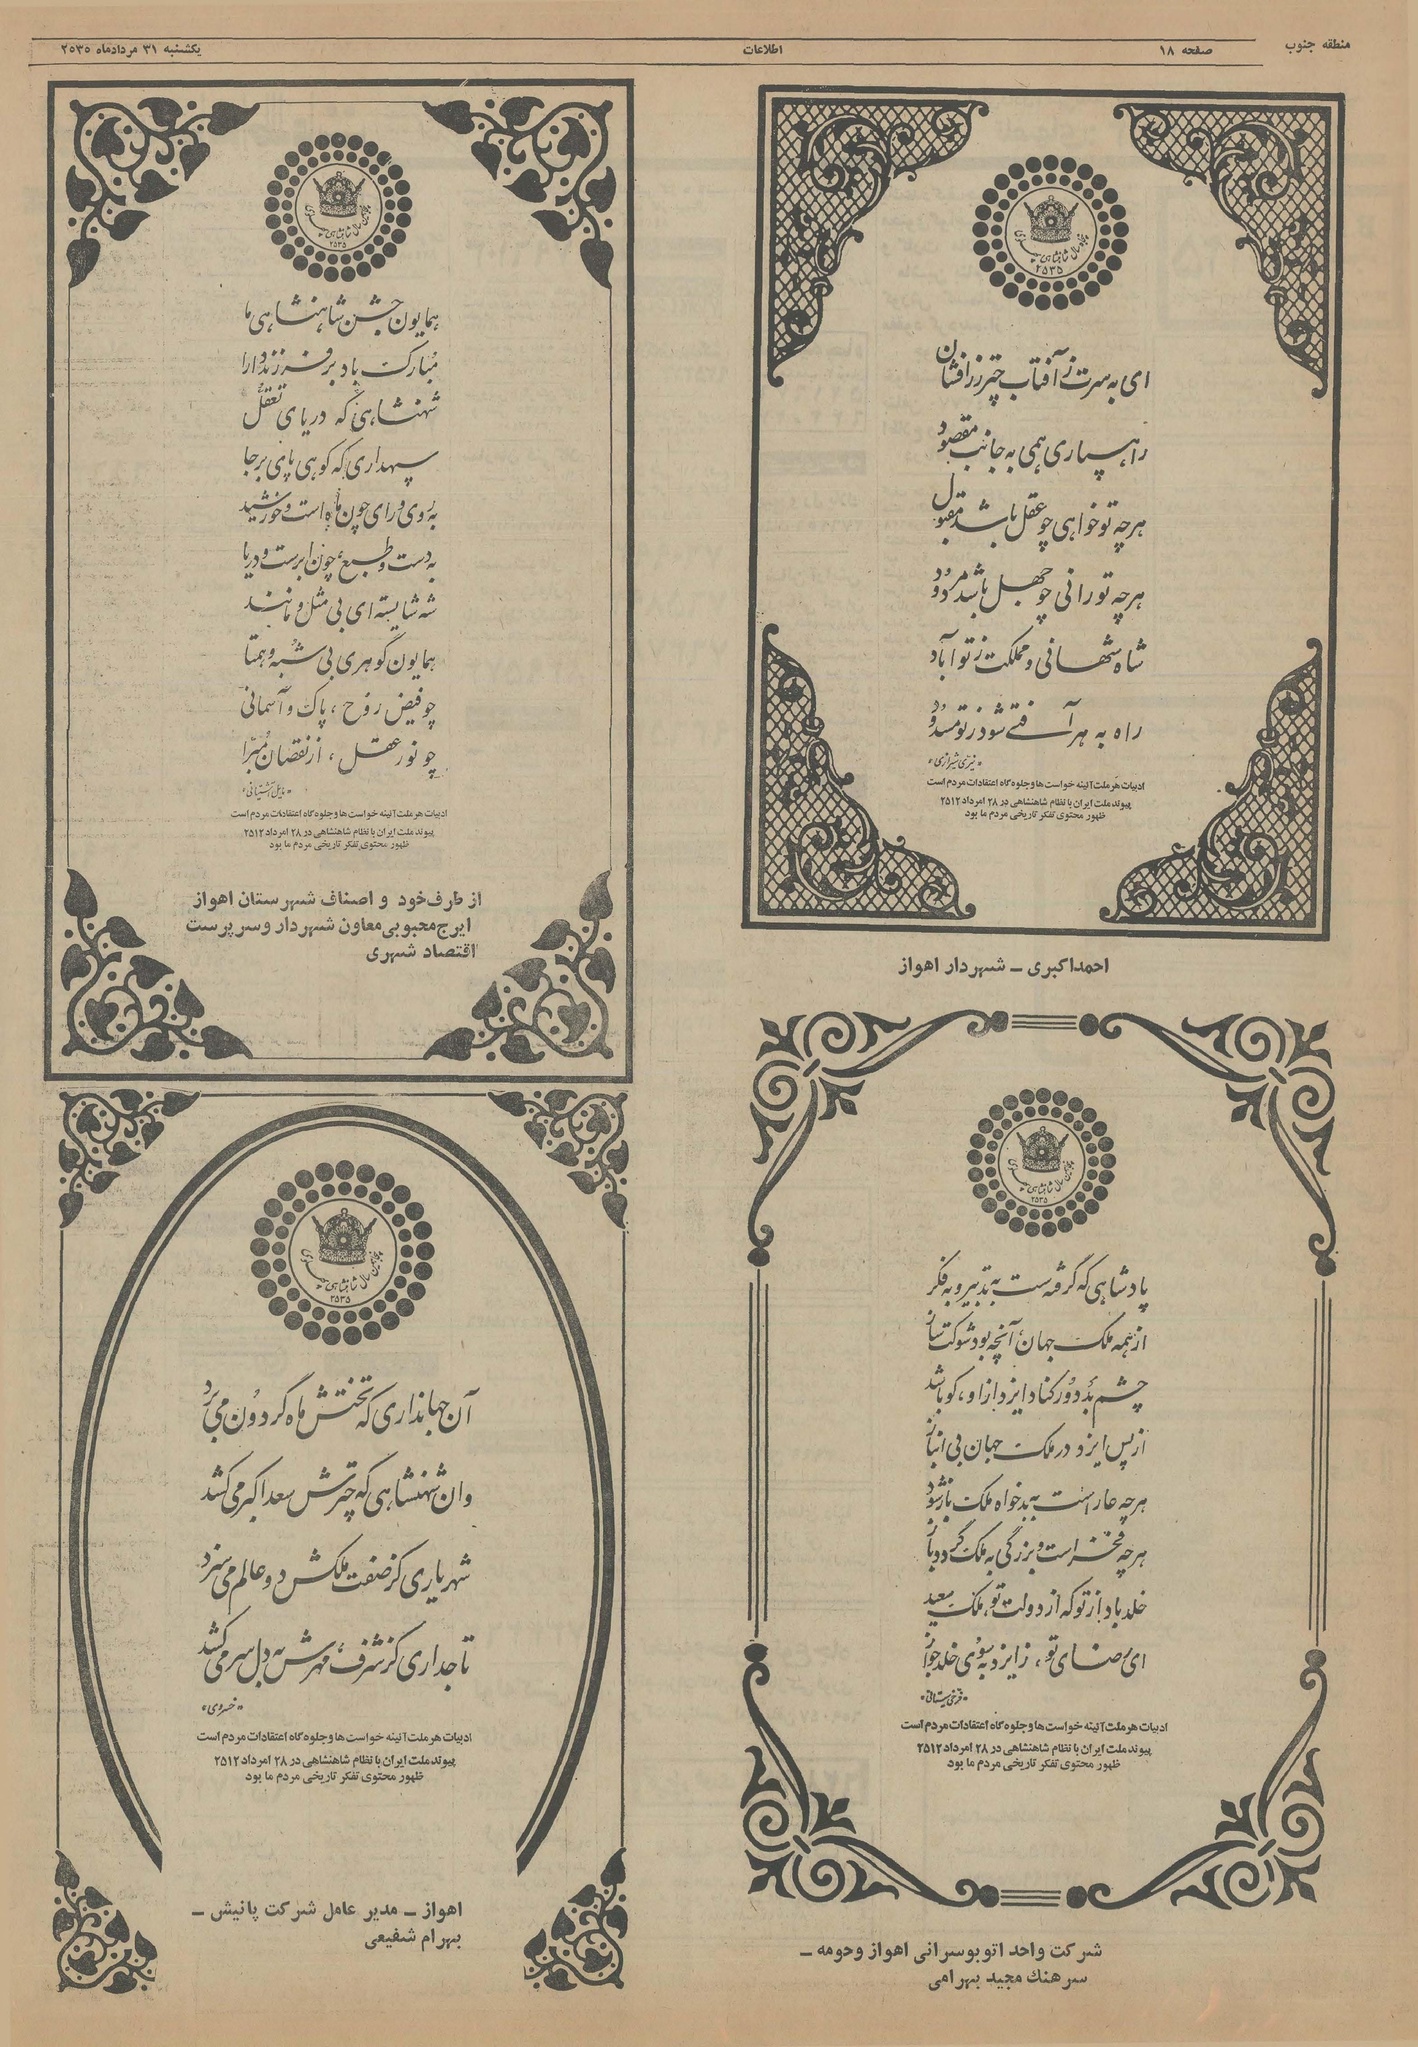 منطقه جنوب
صفحه ۱۸
اطلاعات
یکشنبه ۳۱ مردادماه ۲۵۳۵
پنجاهمین سال شاهنشاهی پهلوی
۲۵۳۵
ای به سرت ز آفتاب چتر زرافشان
راهسپاری همی به جانب مقصود
هرچه تو خواهی چو عقل باشد مقبول
هرچه تو رانی چو جهل باشد مردود
شاه شهانی و مملکت ز تو آباد
راه به هر آفتی شود ز تو مسدود
«نیری شیرازی»
ادبیات هر ملت آئینه خواست‌ها و جلوه‌گاه اعتقادات مردم است
پیوند ملت ایران با نظام شاهنشاهی در ۲۸ امرداد ۲۵۱۲
ظهور محتوی تفکر تاریخی مردم ما بود
احمد اکبری ـ شهردار اهواز
پنجاهمین سال شاهنشاهی پهلوی
۲۵۳۵
همایون جشن شاهنشاهی ما
مبارک باد بر فرزند دارا
شهنشاهی که دریای تعقل
سپهداری که کوهی پای برجا
به روی و رای چون ماه است و خورشید
به دست و طبع، چون ابرست و دریا
شه شایسته‌ای بی مثل و مانند
همایون گوهری بی شبه و همتا
چو فیض روح، پاک و آسمانی
چو نور عقل، از نقصان مبرا
ادبیات هر ملت آئینه خواست‌ها و جلوه‌گاه اعتقادات مردم است
پیوند ملت ایران با نظام شاهنشاهی در ۲۸ امرداد ۲۵۱۲
ظهور محتوی تفکر تاریخی مردم ما بود
از طرف خود و اصناف شهرستان اهواز
ایرج محبوبی معاون شهردار و سرپرست
اقتصاد شهری
پنجاهمین سال شاهنشاهی پهلوی
۲۵۳۵
پادشاهی که گرفته‌ست به تدبیر و به فکر
از همه ملک جهان، آنچه بود شوکت ساز
چشم بد دور کناد ایزد از او، کو باشد
از پس ایزد در ملک جهان بی انباز
هرچه عار است به بدخواه ملک باز شود
هرچه فخر است و بزرگی به ملک گردد باز
خلد باد از تو که از دولت تو، ملک سعید
ای رضای تو، ز ایزد به سوی خلد جواز
«فرخی سیستانی»
ادبیات هر ملت آئینه خواست‌ها و جلوه‌گاه اعتقادات مردم است
پیوند ملت ایران با نظام شاهنشاهی در ۲۸ امرداد ۲۵۱۲
ظهور محتوی تفکر تاریخی مردم ما بود
شرکت واحد اتوبوسرانی اهواز و حومه ـ
سرهنك مجید بهرامی
پنجاهمین سال شاهنشاهی پهلوی
۲۵۳۵
آن جهانداری که تختش ماه گردون می برد
وان شهنشاهی که چترش سعد اکبر می کشد
شهریاری کز صفت ملکش دو عالم می سزد
تاجداری کز شرف، مهرش به دل سر می کشد
«خسروی»
ادبیات هر ملت آئینه خواست‌ها و جلوه‌گاه اعتقادات مردم است
پیوند ملت ایران با نظام شاهنشاهی در ۲۸ امرداد ۲۵۱۲
ظهور محتوی تفکر تاریخی مردم ما بود
اهواز ـ مدیر عامل شرکت پانیش ـ
بهرام شفیعی